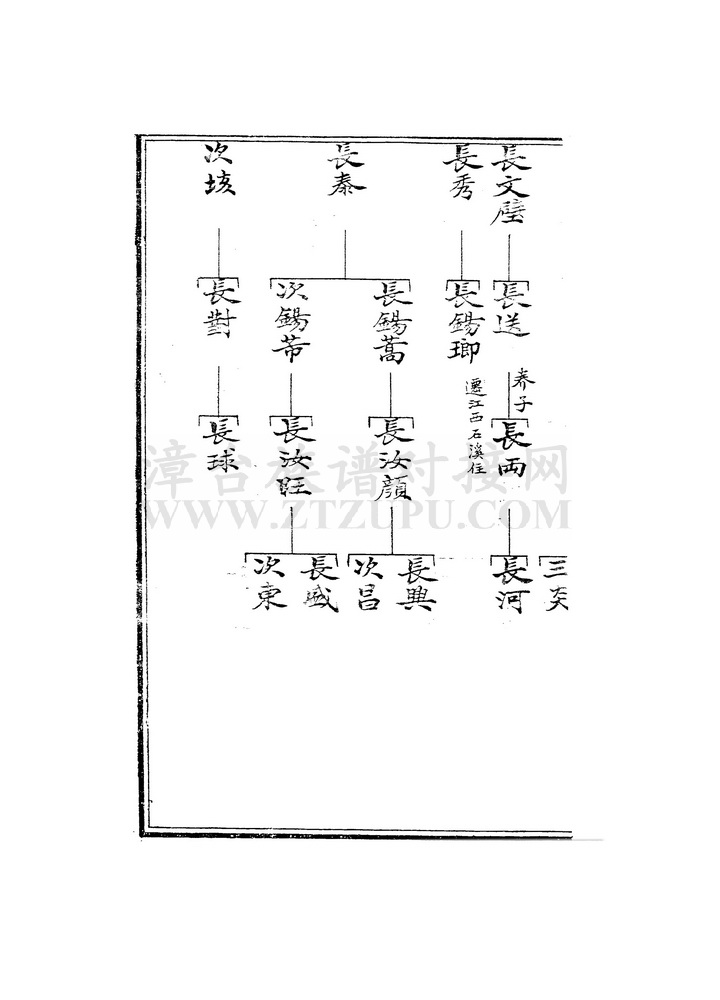 長文璧
長秀
長泰
次垓
長送
長錫瑯
長錫蒿
次錫芾
長對
養子
長両
遷江西石溪住
長汝顔
長汝旺
長球
三
長河
長興
次昌
長盛
次東
漳台族谱对接网
WWW.ZTZUPU.COM